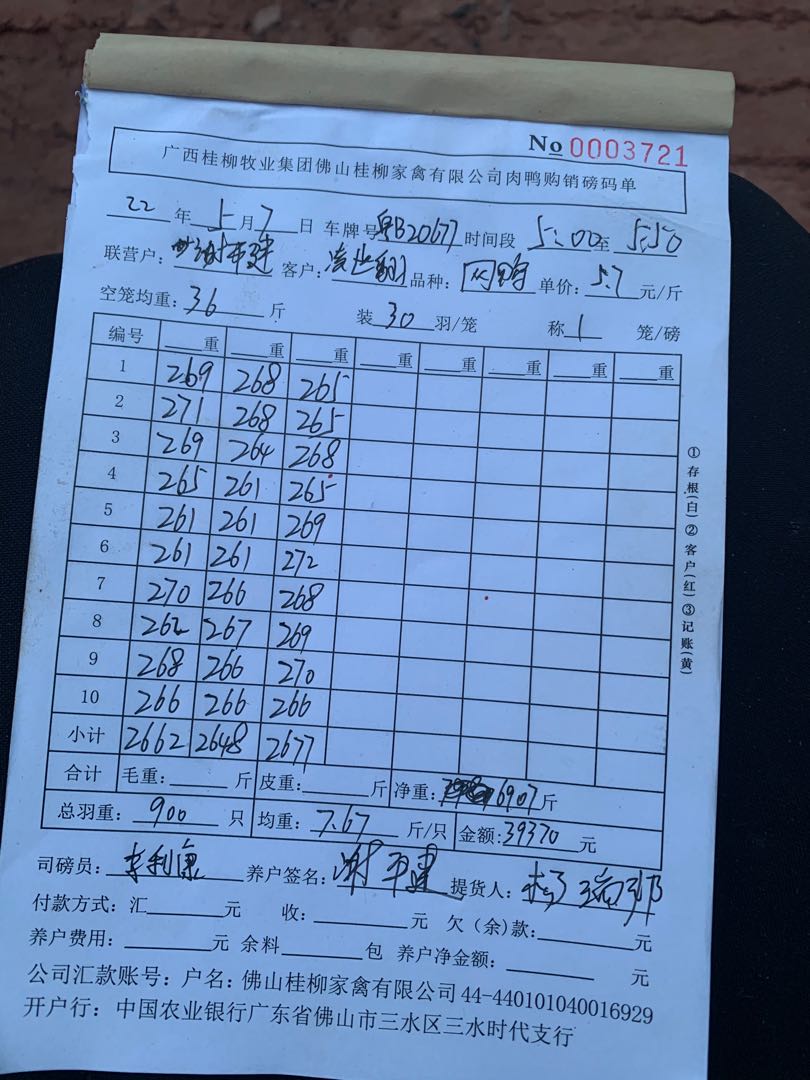 No 0003721
广西桂柳牧业集团佛山桂柳家禽有限公司肉鸭购销磅码单
22 年 5 月 7 日 车牌号 粤B20677 时间段 5:00 至 5:50
联营户: 谢平建 客户: 品种: 单价: 5.7 元/斤
空笼均重: 36 斤 装 30 羽/笼 称 1 笼/磅
编号 重 重 重 重 重 重 重 重
1 269 268 265
2 271 268 265
3 269 264 268
4 265 261 265
5 261 261 269
6 261 261 272
7 270 266 268
8 262 267 269
9 268 266 270
10 266 266 266
小计 2662 2648 2677
合计 毛重: 斤 皮重: 斤 净重: 6907 斤
总羽重: 900 只 均重: 7.67 斤/只 金额: 39370 元
司磅员: 李利康 养户签名: 谢平建 提货人: 杨
付款方式: 汇 元 收: 元 欠(余)款: 元
养户费用: 元 余料 包 养户净金额: 元
公司汇款账号: 户名: 佛山桂柳家禽有限公司 44-440101040016929
开户行: 中国农业银行广东省佛山市三水区三水时代支行
①存根(白)②客户(红)③记账(黄)